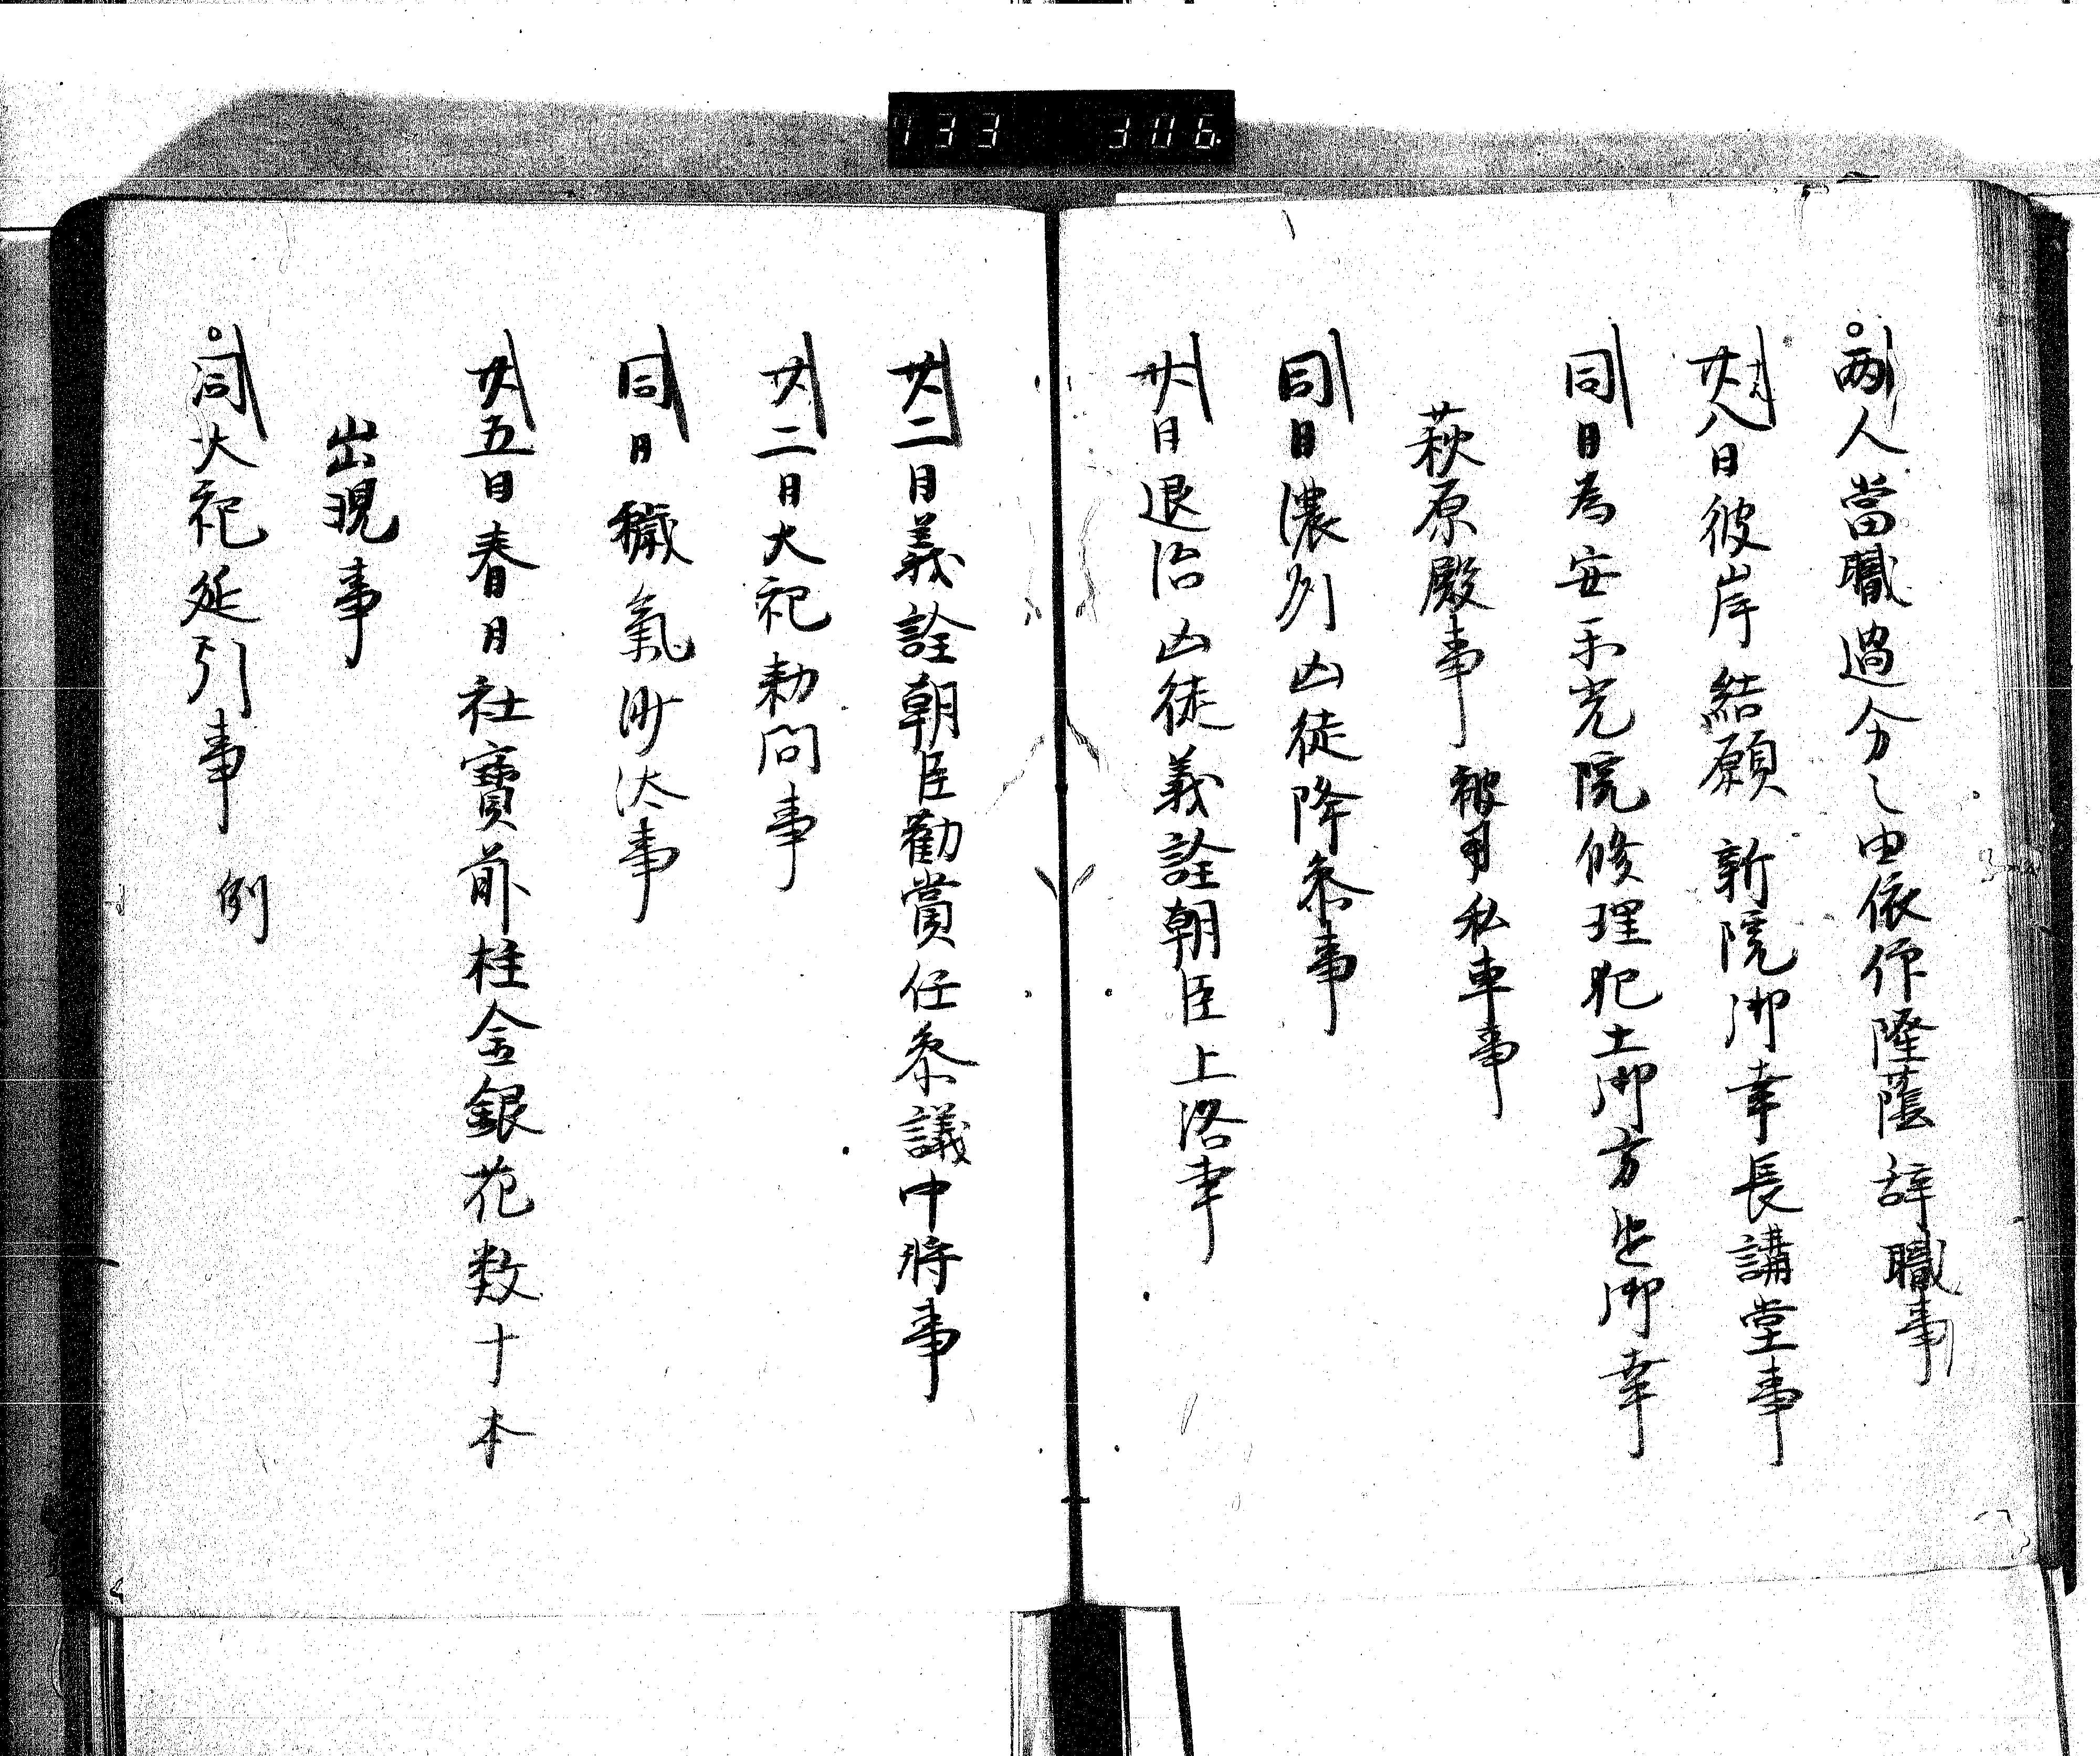 133 306
両人當職過分之由依仰隆蔭辞職事
廿八日彼岸結願新院御幸長講堂事
同日為安樂光院修理犯土御方違御幸
萩原殿事 被用私車事
同日濃州凶徒降参事
廿日退治凶徒義詮朝臣上洛事
廿二日義詮朝臣勸賞任参議中将事
廿二日大祀勅問事
同日穢氣沙汰事
廿五日春日社寶前柱金銀花数十本
出現事
同大祀延引事 例